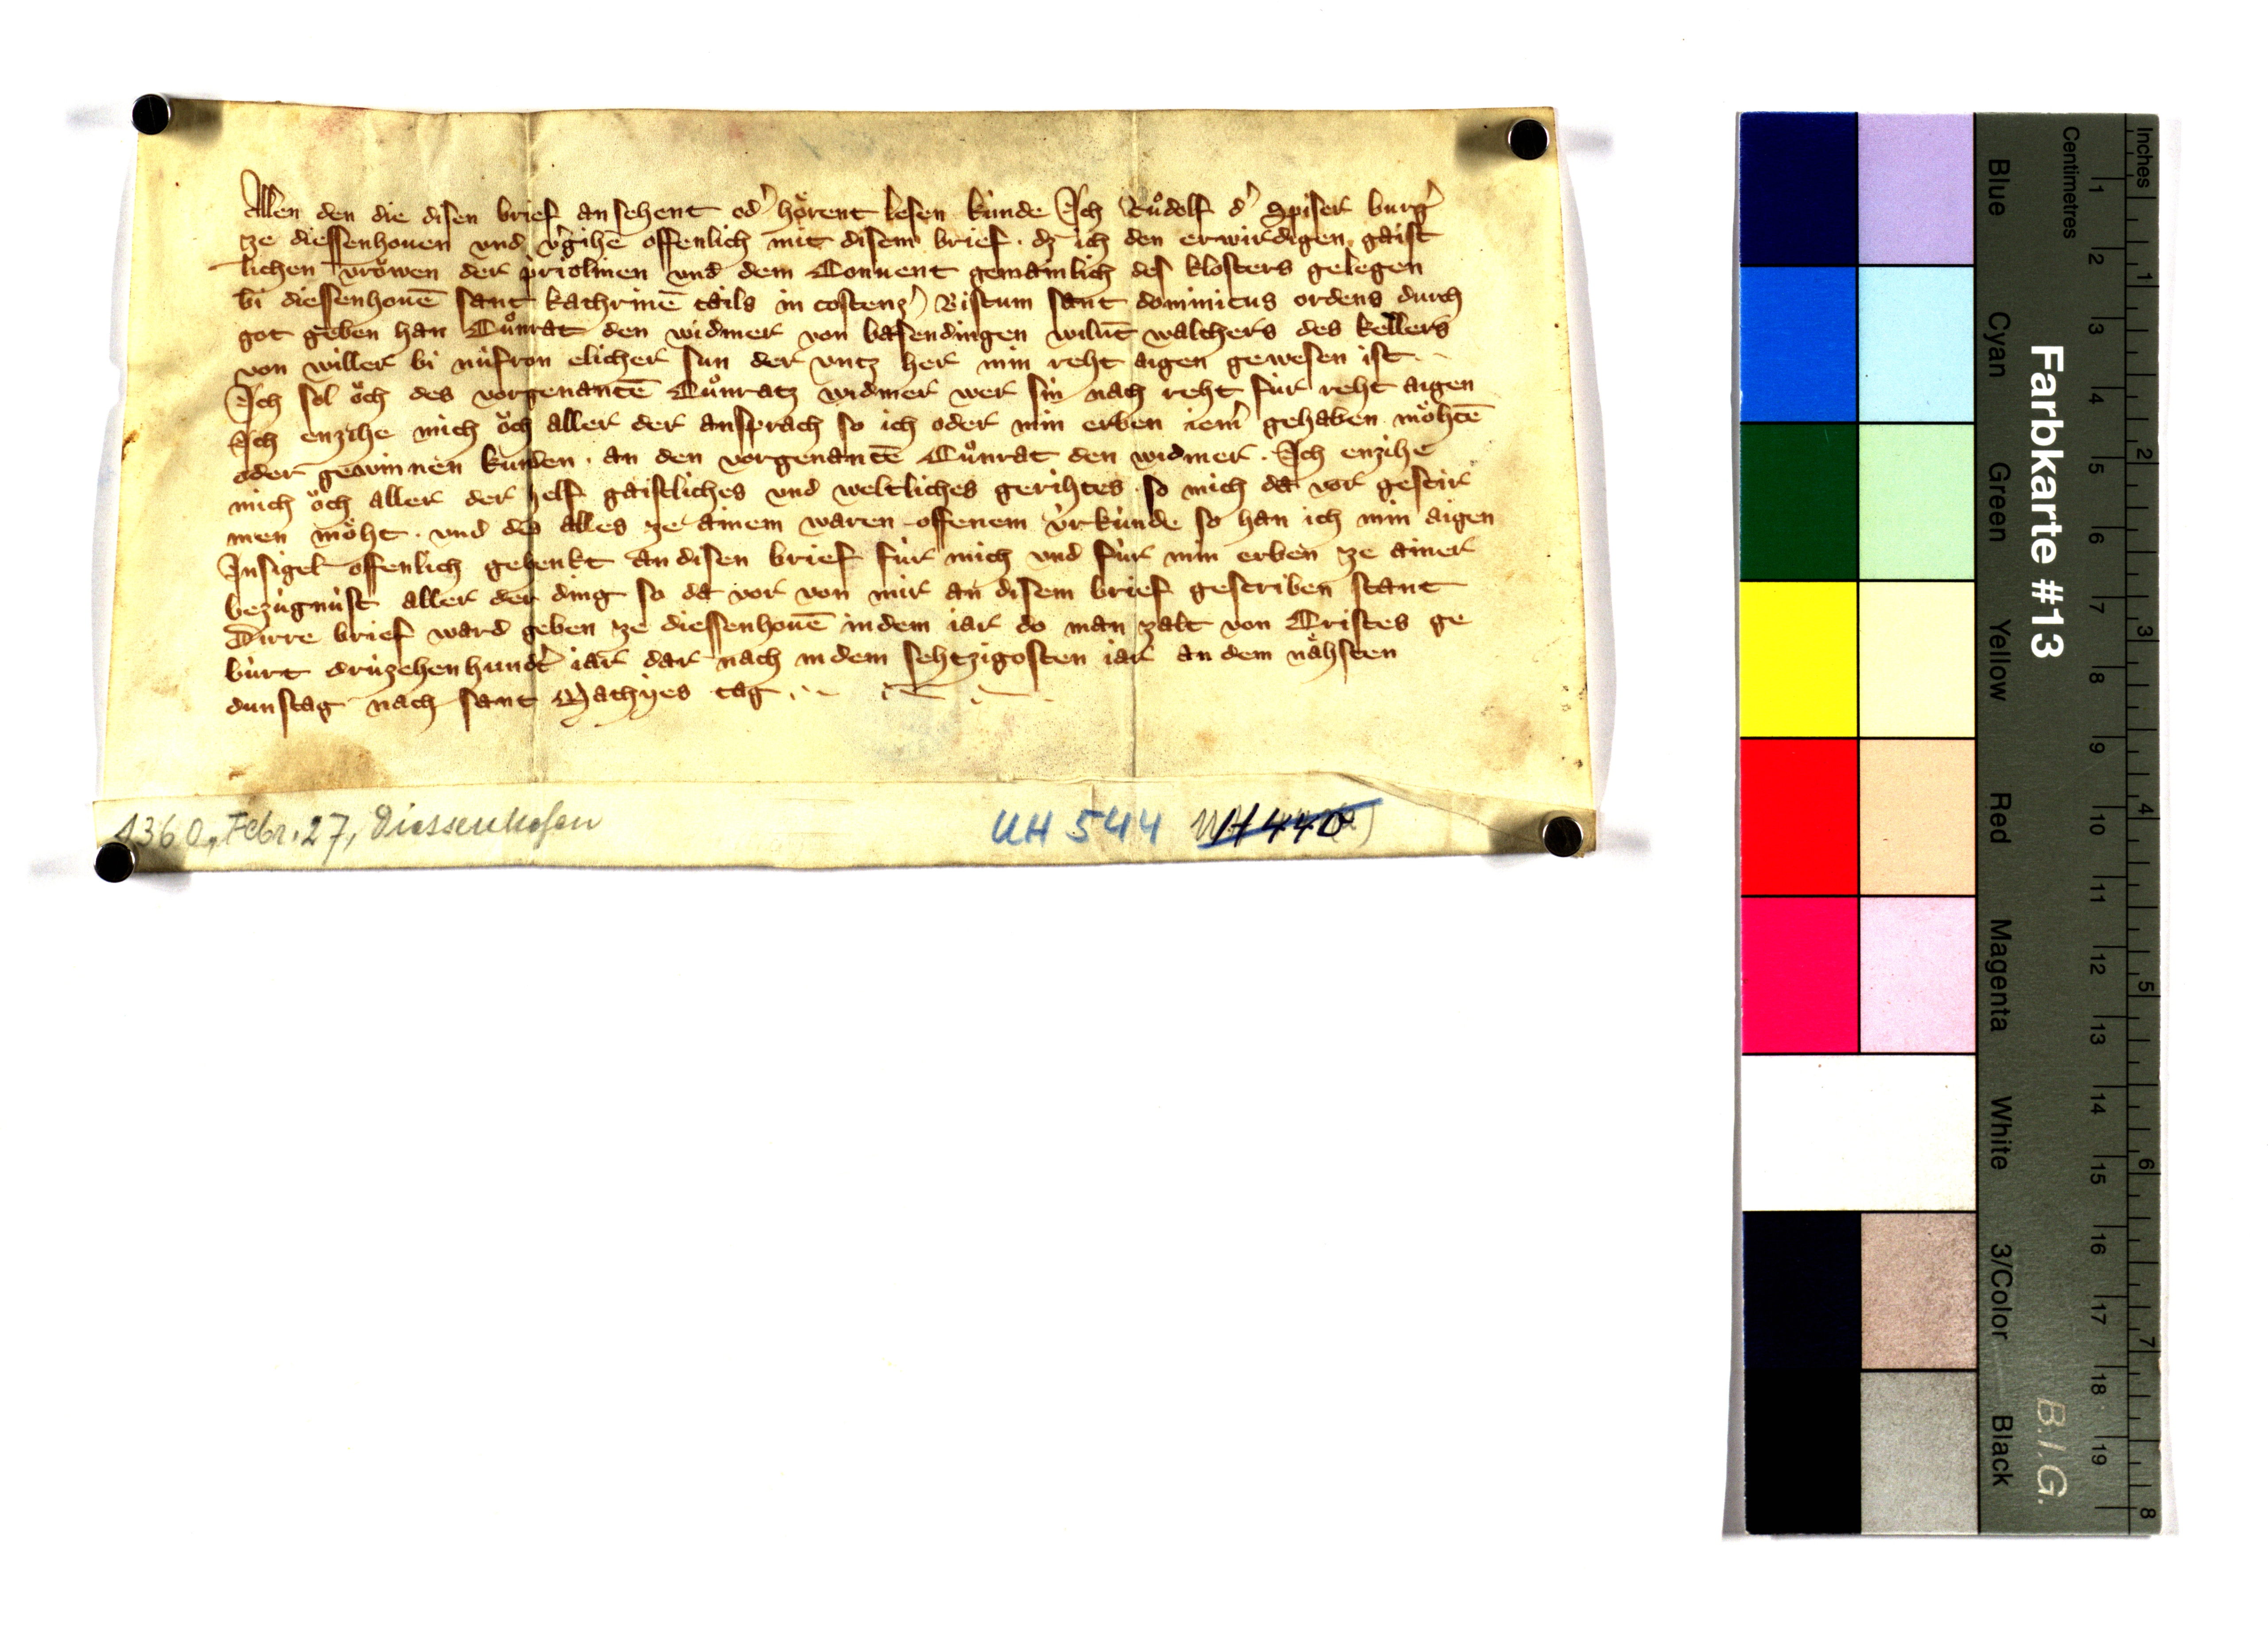 Allen den die disen brief ansehent od' hörent lesen künde Ich Růdolf d' Spiser burg'
ze diessenhouen vnd v'gihē offenlich mit disem brief · dz ich den erwirdigen gaist
lichen vröwen der priolinen vnd dem Conuent gemainlich des klosters gelegen
bi diessenhouē sant kathrinē tails in costenz' Bistum sant dominicus ordens durch
got geben han Cůnrat den widmer von basendingen wilūt walchers des kellers
von willer bi nüfron elicher sun der vntz her min reht aigen gewesen ist
Ich sol öch des vorgenantē Cůnratz widmer wer sin nach reht für reht aigen
Ich enzihe mich öch aller der ansprach so ich oder min erben iem' gehaben möhtē
oder gewinnen kunden · an den vorgenantē Cůnrat den widmer · Ich enzihe
mich öch aller der helf gaistliches vnd weltliches gerihtes so mich da vor geschir
men möht · vnd des alles ze ainem waren offenem vrkünde so han ich min aigen
Insigel offenlich gehenkt an disen brief für mich vnd für min erben ze ainer
bezügnüst aller der ding so da vor von mir an disem brief gescriben stant
Dirre brief ward geben ze diessenhouē in dem iar do man zalt von Cristes ge
bürt drüzehenhundt' iar dar nach in dem sehtzigosten iar an dem nähsten
dunstag nach sant Mathyes tag
1360, Febr. 27, Diessenhofen
UH 544
UH 440
Farbkarte #13
B.I.G.
Inches 1 2 3 4 5 6 7 8
Centimetres 1 2 3 4 5 6 7 8 9 10 11 12 13 14 15 16 17 18 19
Blue Cyan Green Yellow Red Magenta White 3/Color Black